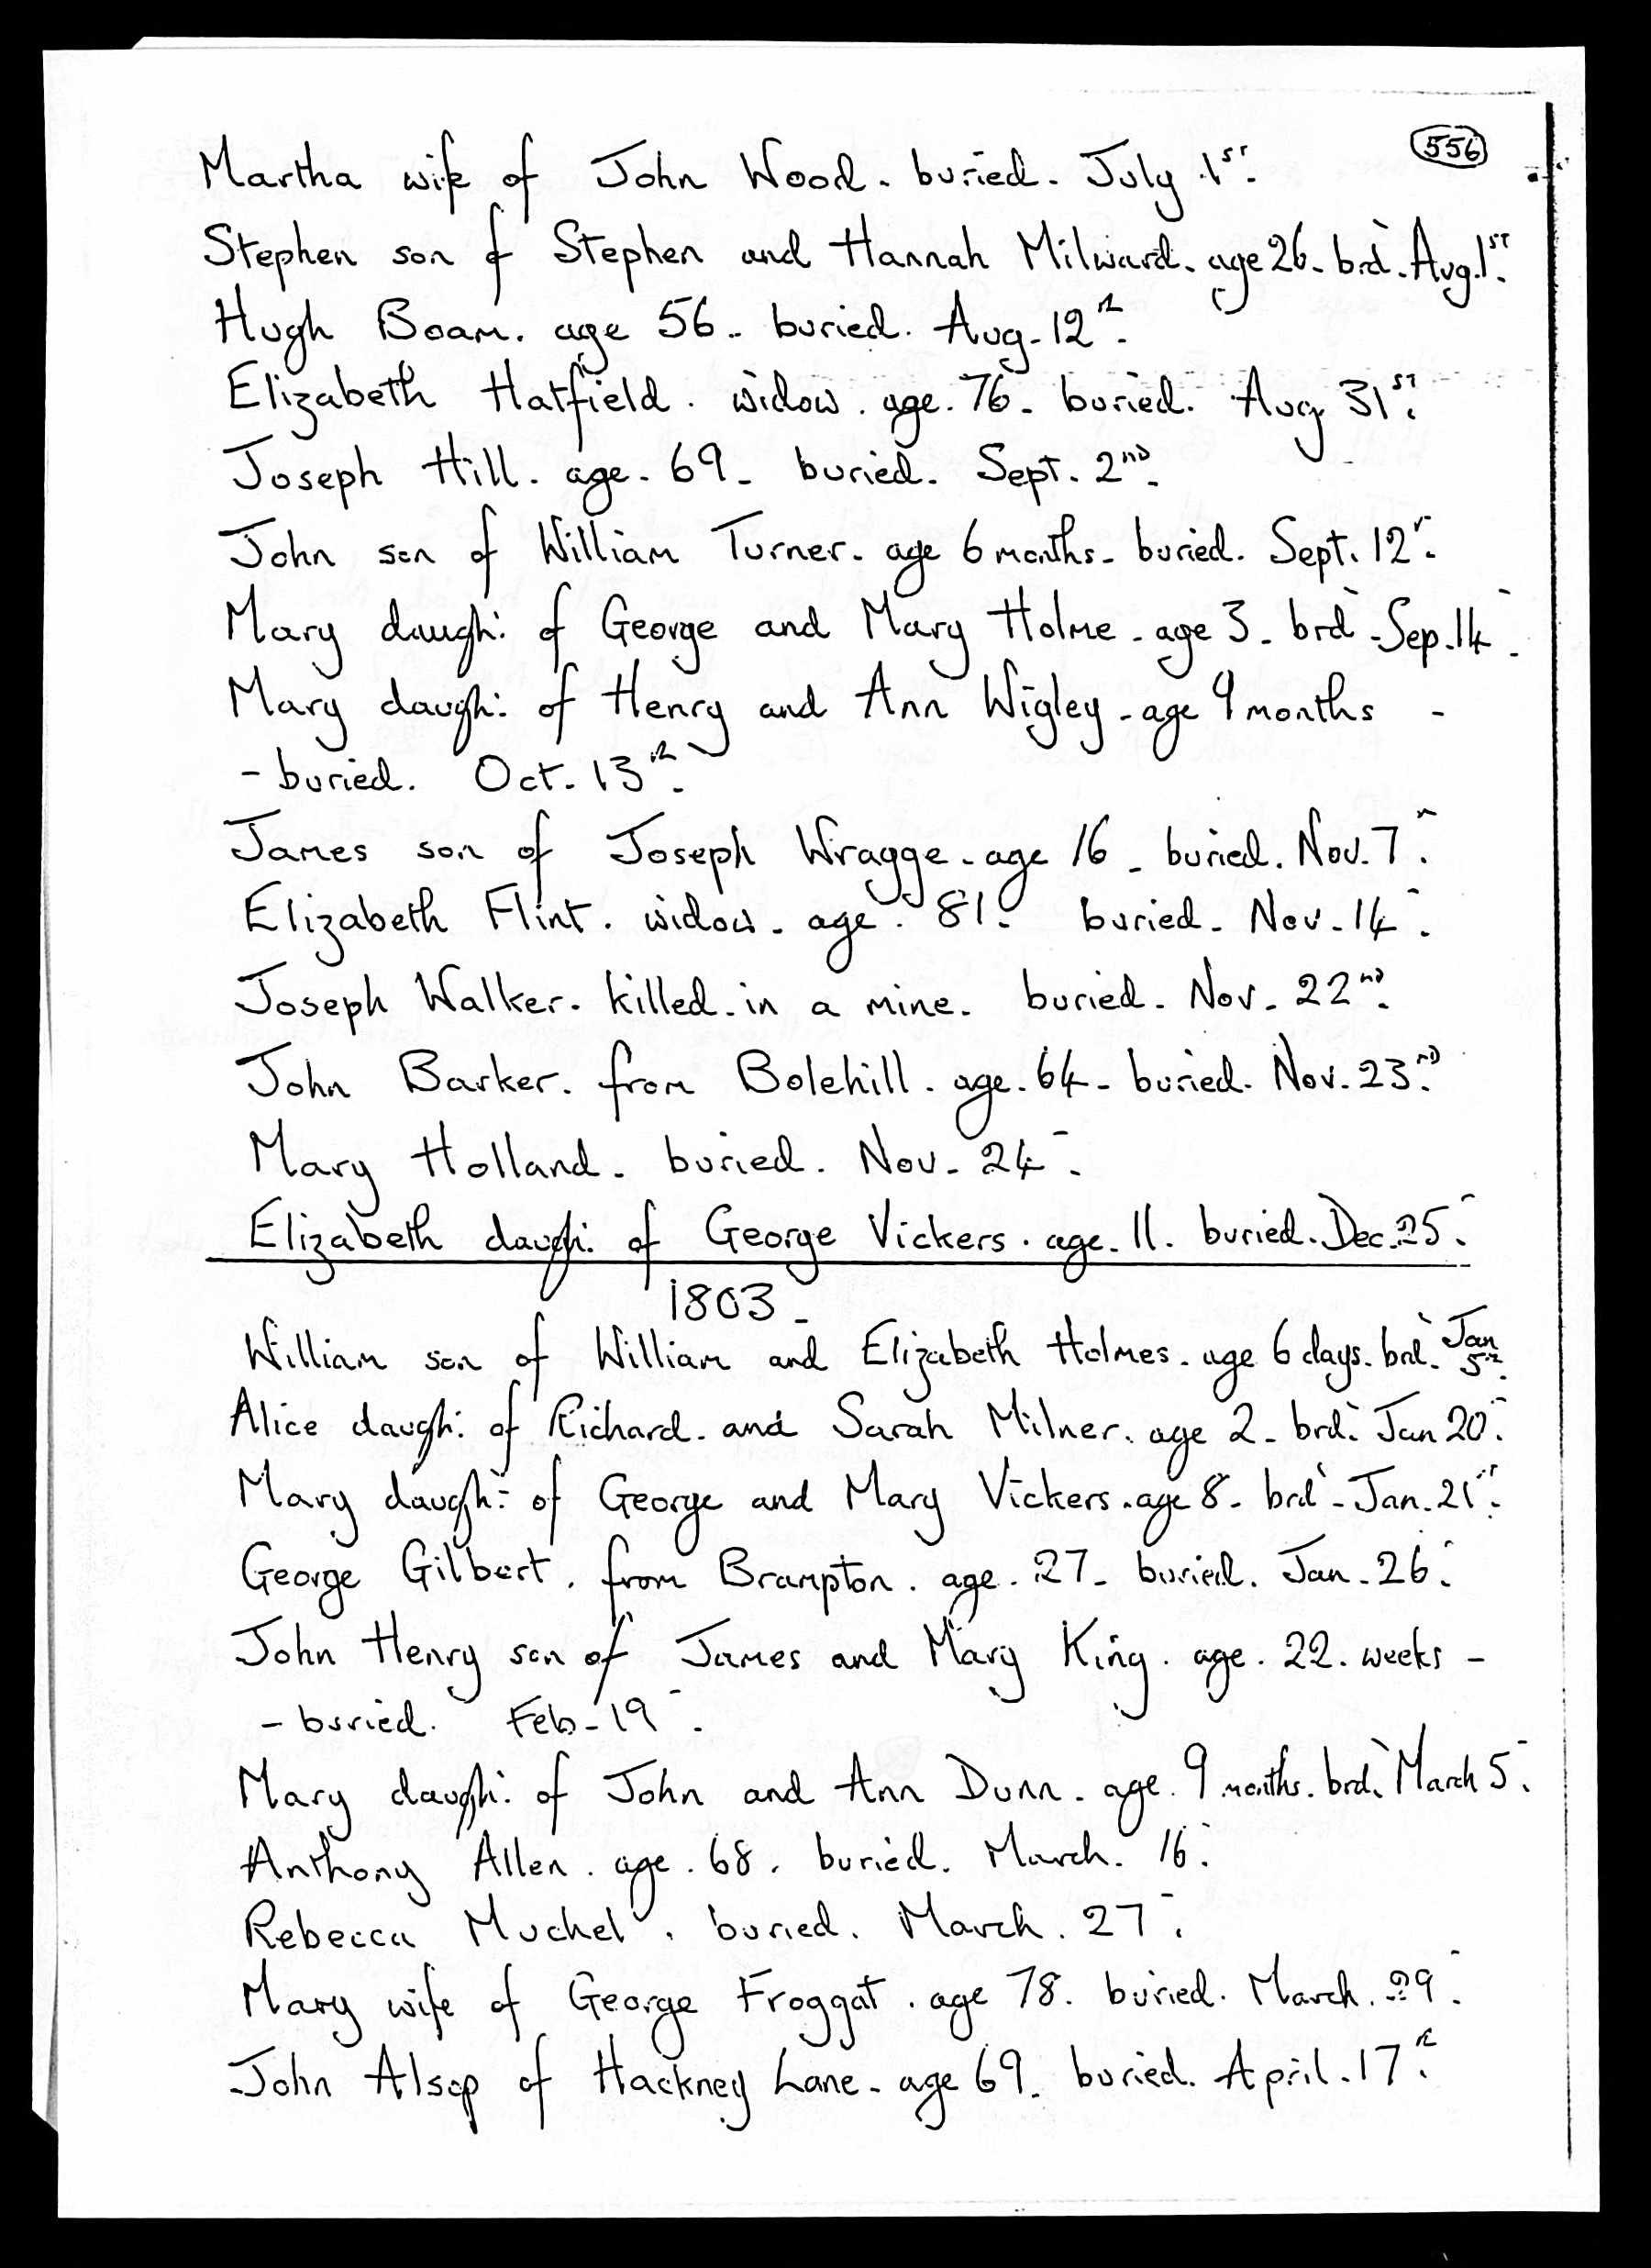 556
Martha wife of John Wood. buried. July 1st.
Stephen son of Stephen and Hannah Milward. age 26. brd. Aug. 1st.
Hugh Boam. age 56. buried. Aug. 12th.
Elizabeth Hatfield. widow. age. 76. buried. Aug 31st.
Joseph Hill. age. 69. buried. Sept. 2nd.
John son of William Turner. age 6 months. buried. Sept. 12th.
Mary daugh: of George and Mary Holme. age 3. brd. Sep. 14.
Mary daugh: of Henry and Ann Wigley. age 9 months -
- buried. Oct. 13th.
James son of Joseph Wragge. age 16. buried. Nov. 7.
Elizabeth Flint. widow. age. 81. buried. Nov. 14.
Joseph Walker. killed in a mine. buried. Nov. 22nd.
John Barker. from Bolehill. age. 64. buried. Nov. 23rd.
Mary Holland. buried. Nov. 24.
Elizabeth daugh: of George Vickers. age. 11. buried. Dec. 25.
1803.
William son of William and Elizabeth Holmes. age 6 days. brd. Jan 5th.
Alice daugh: of Richard. and Sarah Milner. age 2. brd. Jan 20.
Mary daugh: of George and Mary Vickers. age 8. brd. Jan. 21st.
George Gilbert. from Brampton. age. 27. buried. Jan. 26.
John Henry son of James and Mary King. age. 22. weeks -
- buried. Feb. 19.
Mary daugh: of John and Ann Dunn. age. 9 months. brd. March 5.
Anthony Allen. age. 68. buried. March. 16.
Rebecca Muchel. buried. March. 27.
Mary wife of George Froggat. age 78. buried. March. 29.
John Alsop of Hackney Lane. age 69. buried. April. 17th.